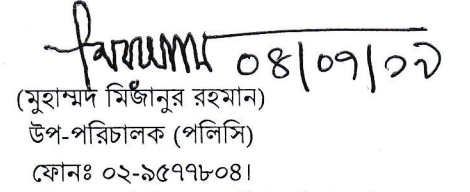 ০৪/০৭/১৯
(মুহাম্মদ মিজাঁনুর রহমান)
উপ-পরিচালক (পলিসি)
ফোনঃ ০২-৯৫৭৭৮০৪।